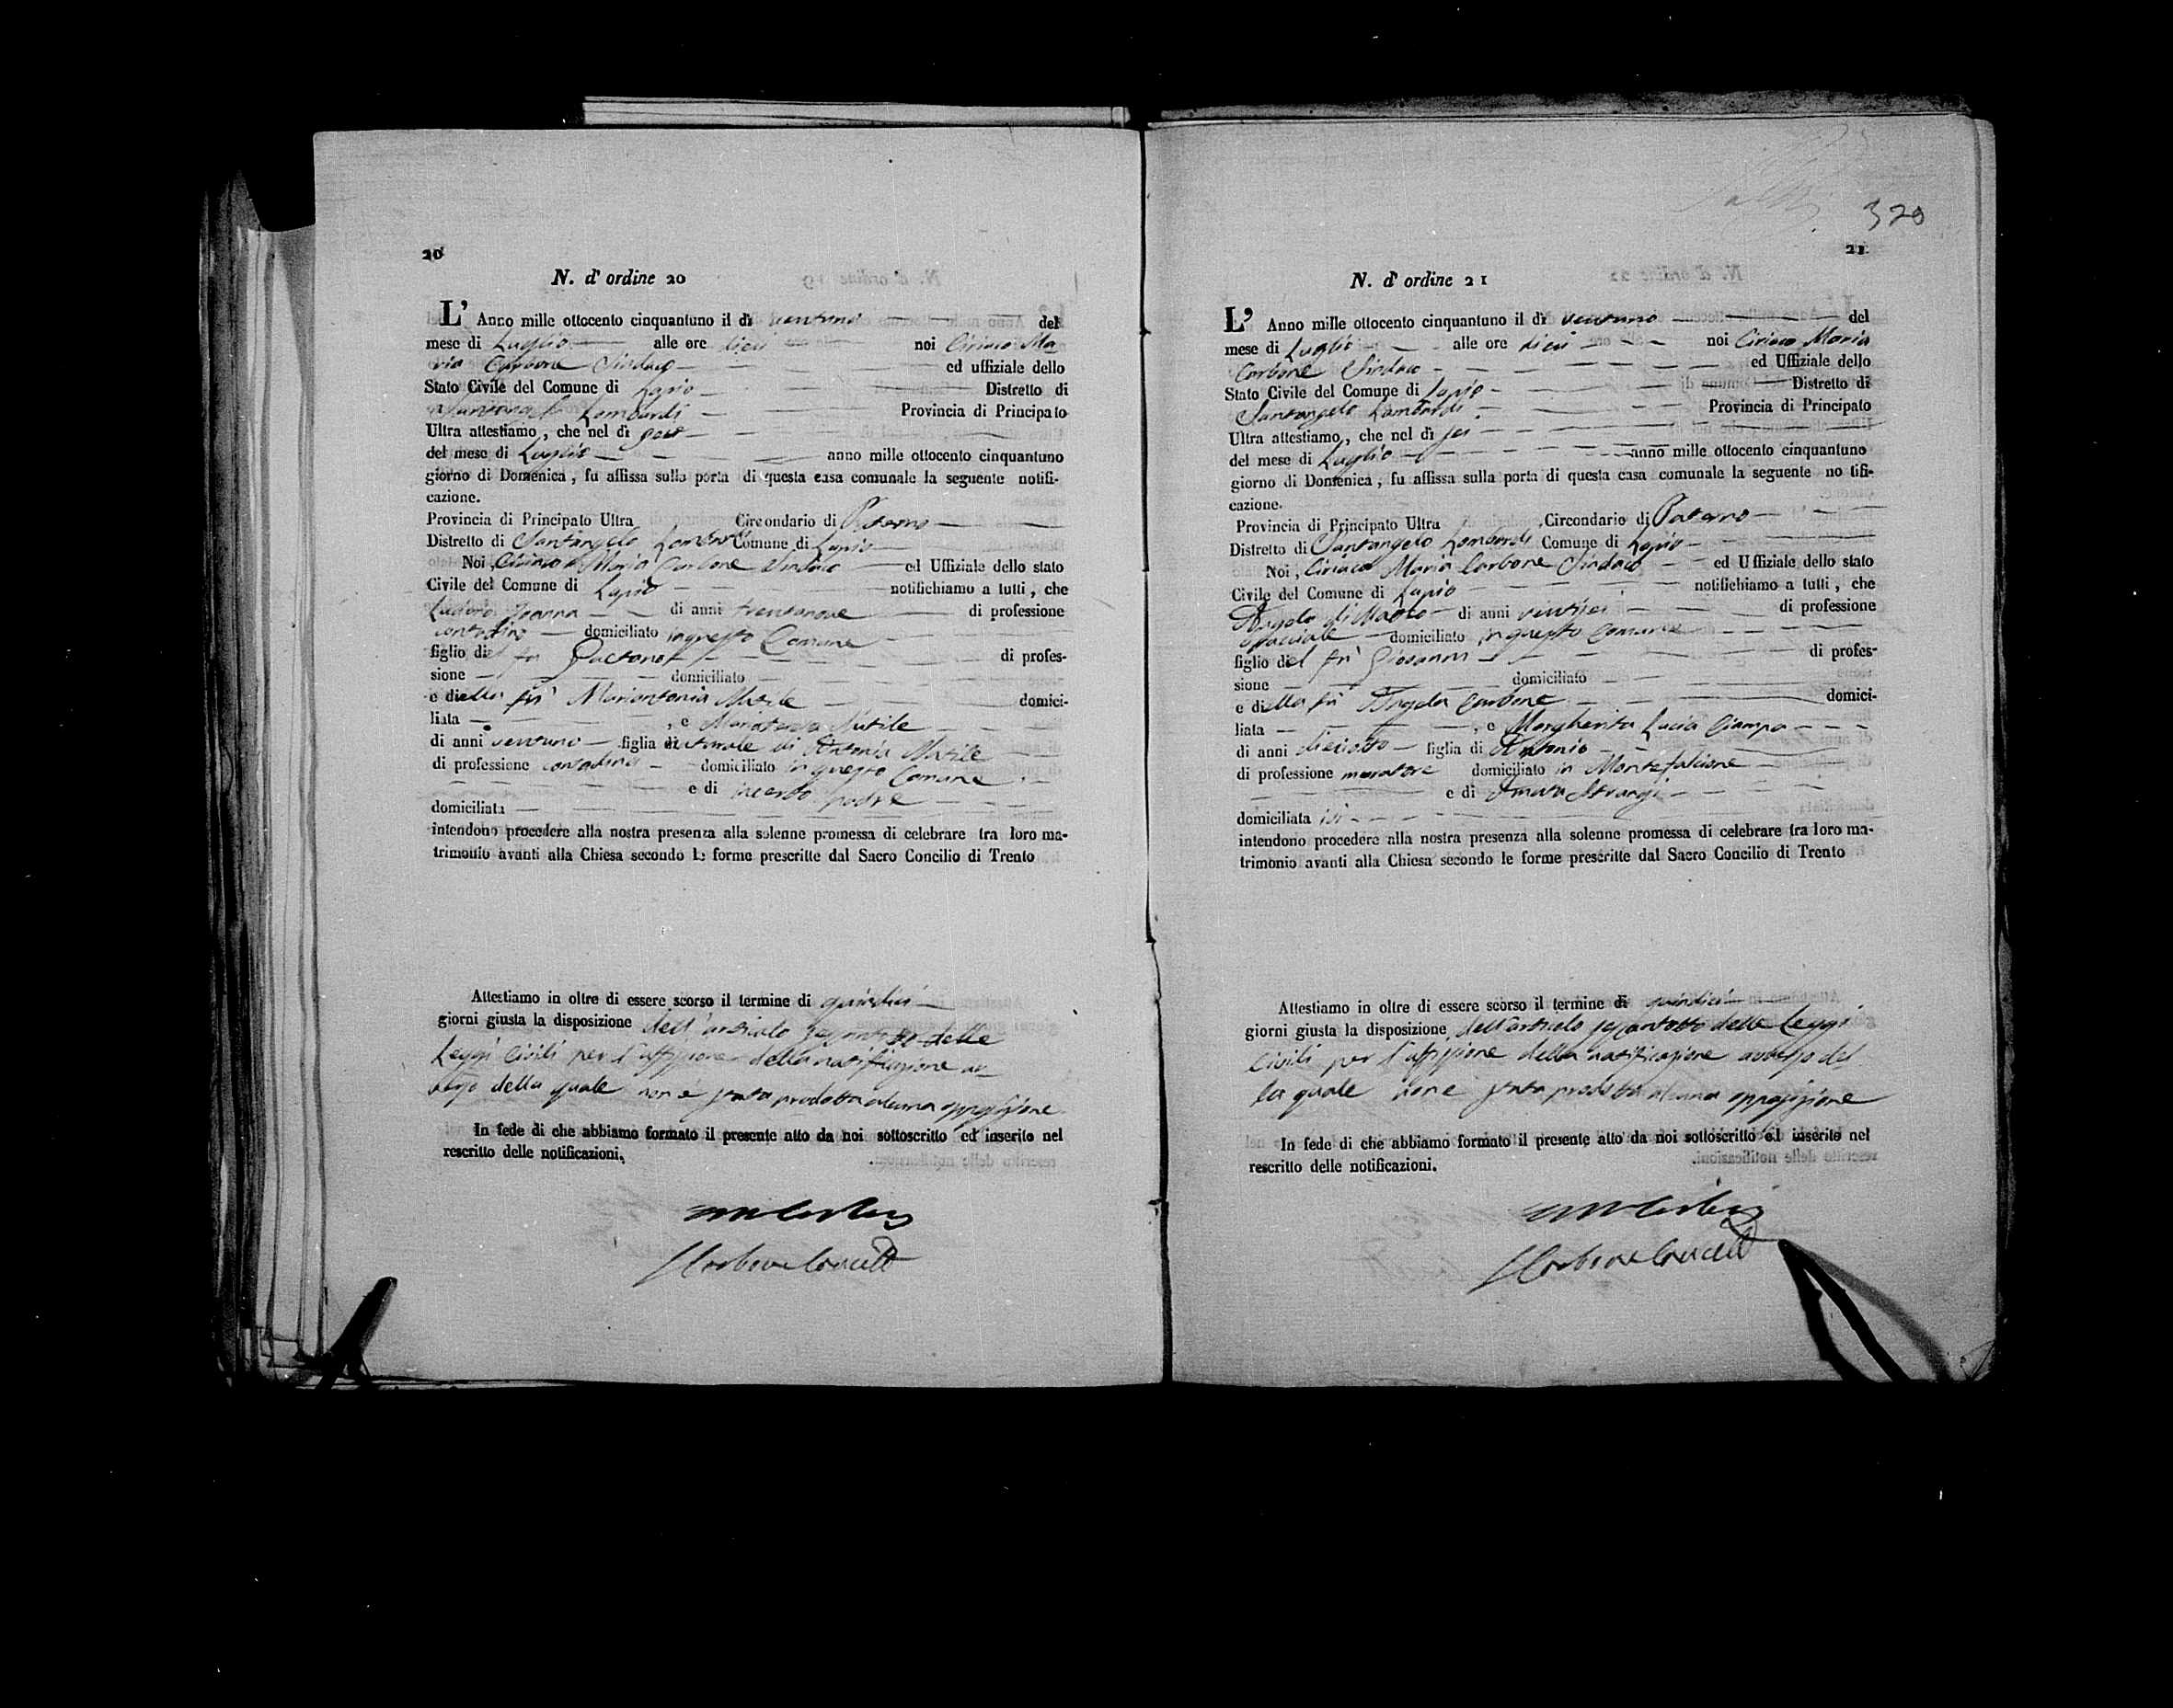 20
N. d' ordine 20
L' Anno mille ottocento cinquantuno il dì ventuno del
mese di Luglio alle ore dieci noi Ciriaco Ma
ria Carbone Sindaco ed uffiziale dello
Stato Civile del Comune di Lapio Distretto di
Santangelo Lombardi Provincia di Principato
Ultra attestiamo, che nel dì sei
del mese di Luglio anno mille ottocento cinquantuno
giorno di Domenica, fu affissa sulla porta di questa casa comunale la seguente notifi-
cazione.
Provincia di Principato Ultra Circondario di Paterno
Distretto di Santangelo Lombardi Comune di Lapio
Noi, Ciriaco Maria Carbone Sindaco ed Uffiziale dello stato
Civile del Comune di Lapio notifichiamo a tutti, che
di anni trentanove di professione
contadino domiciliato in questo Comune
figlio del fu Gaetano di profes-
sione domiciliato
e della fu Mariantonia Mutile domici-
liata , e Mutile
di anni ventuno figlia naturale di Antonia Mutile
di professione contadina domiciliato in questo Comune
e di incerto padre
domiciliata
intendono procedere alla nostra presenza alla solenne promessa di celebrare tra loro ma-
trimonio avanti alla Chiesa secondo le forme prescritte dal Sacro Concilio di Trento
Attestiamo in oltre di essere scorso il termine di quindici
giorni giusta la disposizione dell'articolo delle
Leggi Civili per l'affissione della notificazione av
verso della quale non è stata prodotta alcuna opposizione
In fede di che abbiamo formato il presente atto da noi sottoscritto ed inserito nel
rescritto delle notificazioni.
Carbone Cancell
320
21
N. d' ordine 21
L' Anno mille ottocento cinquantuno il dì ventuno del
mese di Luglio alle ore dieci noi Ciriaco Maria
Carbone Sindaco ed Uffiziale dello
Stato Civile del Comune di Lapio Distretto di
Santangelo Lombardi Provincia di Principato
Ultra attestiamo, che nel dì sei
del mese di Luglio anno mille ottocento cinquantuno
giorno di Domenica, fu affissa sulla porta di questa casa comunale la seguente no tifi-
cazione.
Provincia di Principato Ultra Circondario di Paterno
Distretto di Santangelo Lombardi Comune di Lapio
Noi, Ciriaco Maria Carbone Sindaco ed Uffiziale dello stato
Civile del Comune di Lapio notifichiamo a tutti, che
Angelo di Marco di anni ventisei di professione
domiciliato in questo Comune
figlio del fu Giovanni di profes-
sione domiciliato
e della fu Angela Carbone domici-
liata , e Margherita Lucia Ciampo
di anni dieciotto figlia di Antonio
di professione muratore domiciliato in Montefalcione
e di Amata
domiciliata ivi
intendono procedere alla nostra presenza alla solenne promessa di celebrare tra loro ma-
trimonio avanti alla Chiesa secondo le forme prescritte dal Sacro Concilio di Trento
Attestiamo in oltre di essere scorso il termine di quindici
giorni giusta la disposizione dell'articolo sessantotto delle Leggi
Civili per l'affissione della notificazione avverso del
la quale non è stata prodotta alcuna opposizione
In fede di che abbiamo formato il presente atto da noi sottoscritto ed inserito nel
rescritto delle notificazioni.
Carbone Cancell